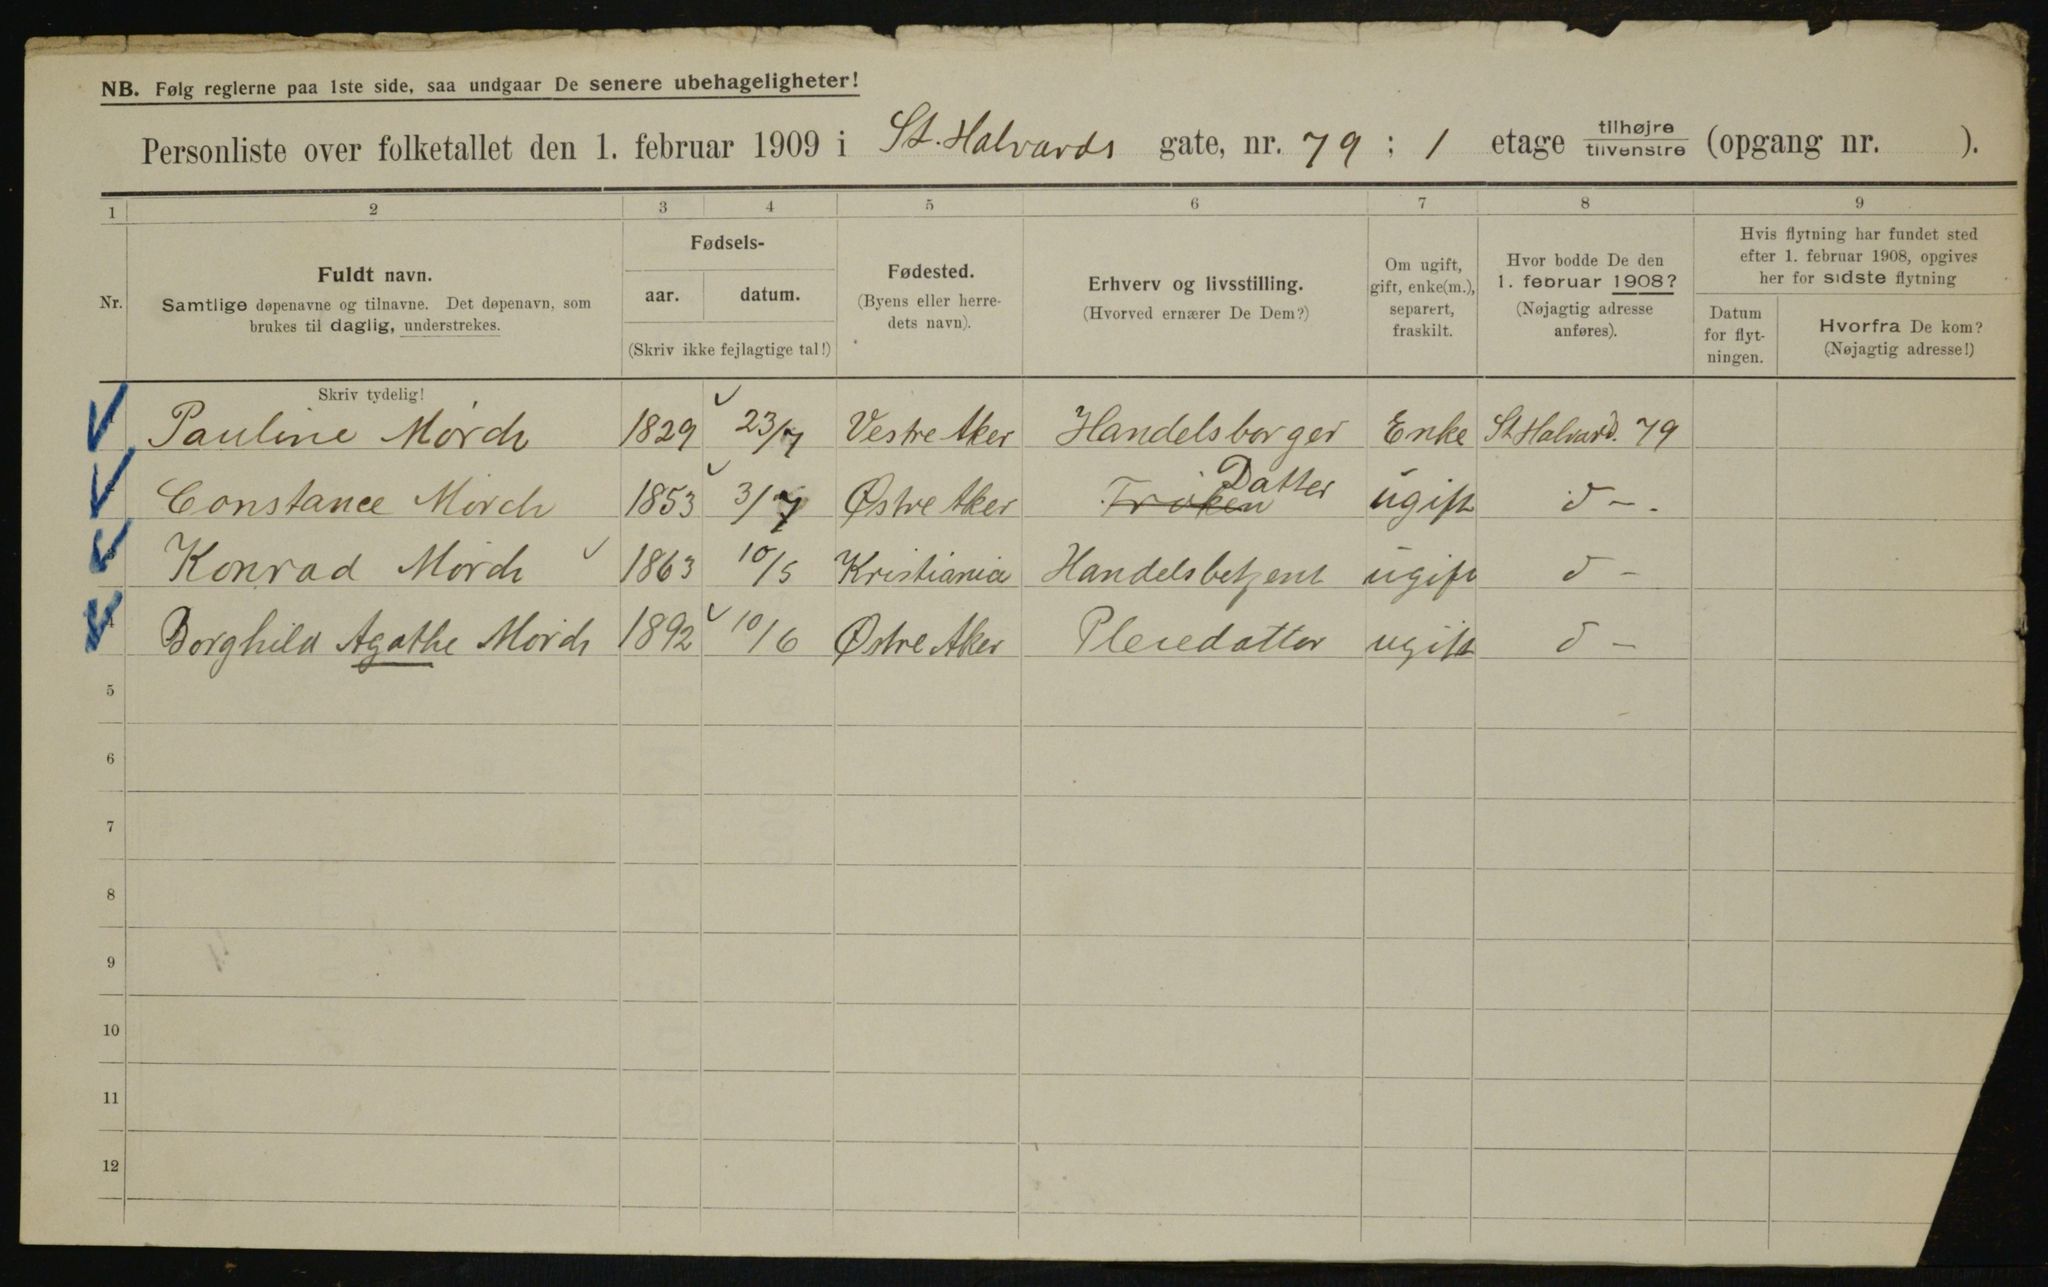 NB. Følg reglerne paa 1ste side, saa undgaar De senere ubehageligheter!
Personliste over folketallet den 1. februar 1909 i St. Halvards gate, nr. 79 ; 1 etage tilhøjre tilvenstre (opgang nr. ).
1 2 3 4 5 6 7 8 9
Nr.
Fuldt navn.
Samtlige døpenavne og tilnavne. Det døpenavn, som
brukes til daglig, understrekes.
Fødsels-
aar. datum.
(Skriv ikke fejlagtige tal!)
Fødested.
(Byens eller herre-
dets navn).
Erhverv og livsstilling.
(Hvorved ernærer De Dem?)
Om ugift,
gift, enke(m.),
separert,
fraskilt.
Hvor bodde De den
1. februar 1908?
(Nøjagtig adresse
anføres).
Hvis flytning har fundet sted
efter 1. februar 1908, opgives
her for sidste flytning
Datum
for flyt-
ningen.
Hvorfra De kom?
(Nøjagtig adresse!)
Skriv tydelig!
Pauline Mørch 1829 23/7 Vestre Aker Handelsborger Enke St Halvard. 79
Constance Mørch 1853 3/7 Østre Aker Frøken Datter ugift d -.
Konrad Mørch 1863 10/5 Kristiania Handelsbetjent ugift d -
4 Borghild Agathe Mørch 1892 10/6 Østre Aker Pleiedatter ugift d -
5
6
7
8
9
10
11
12